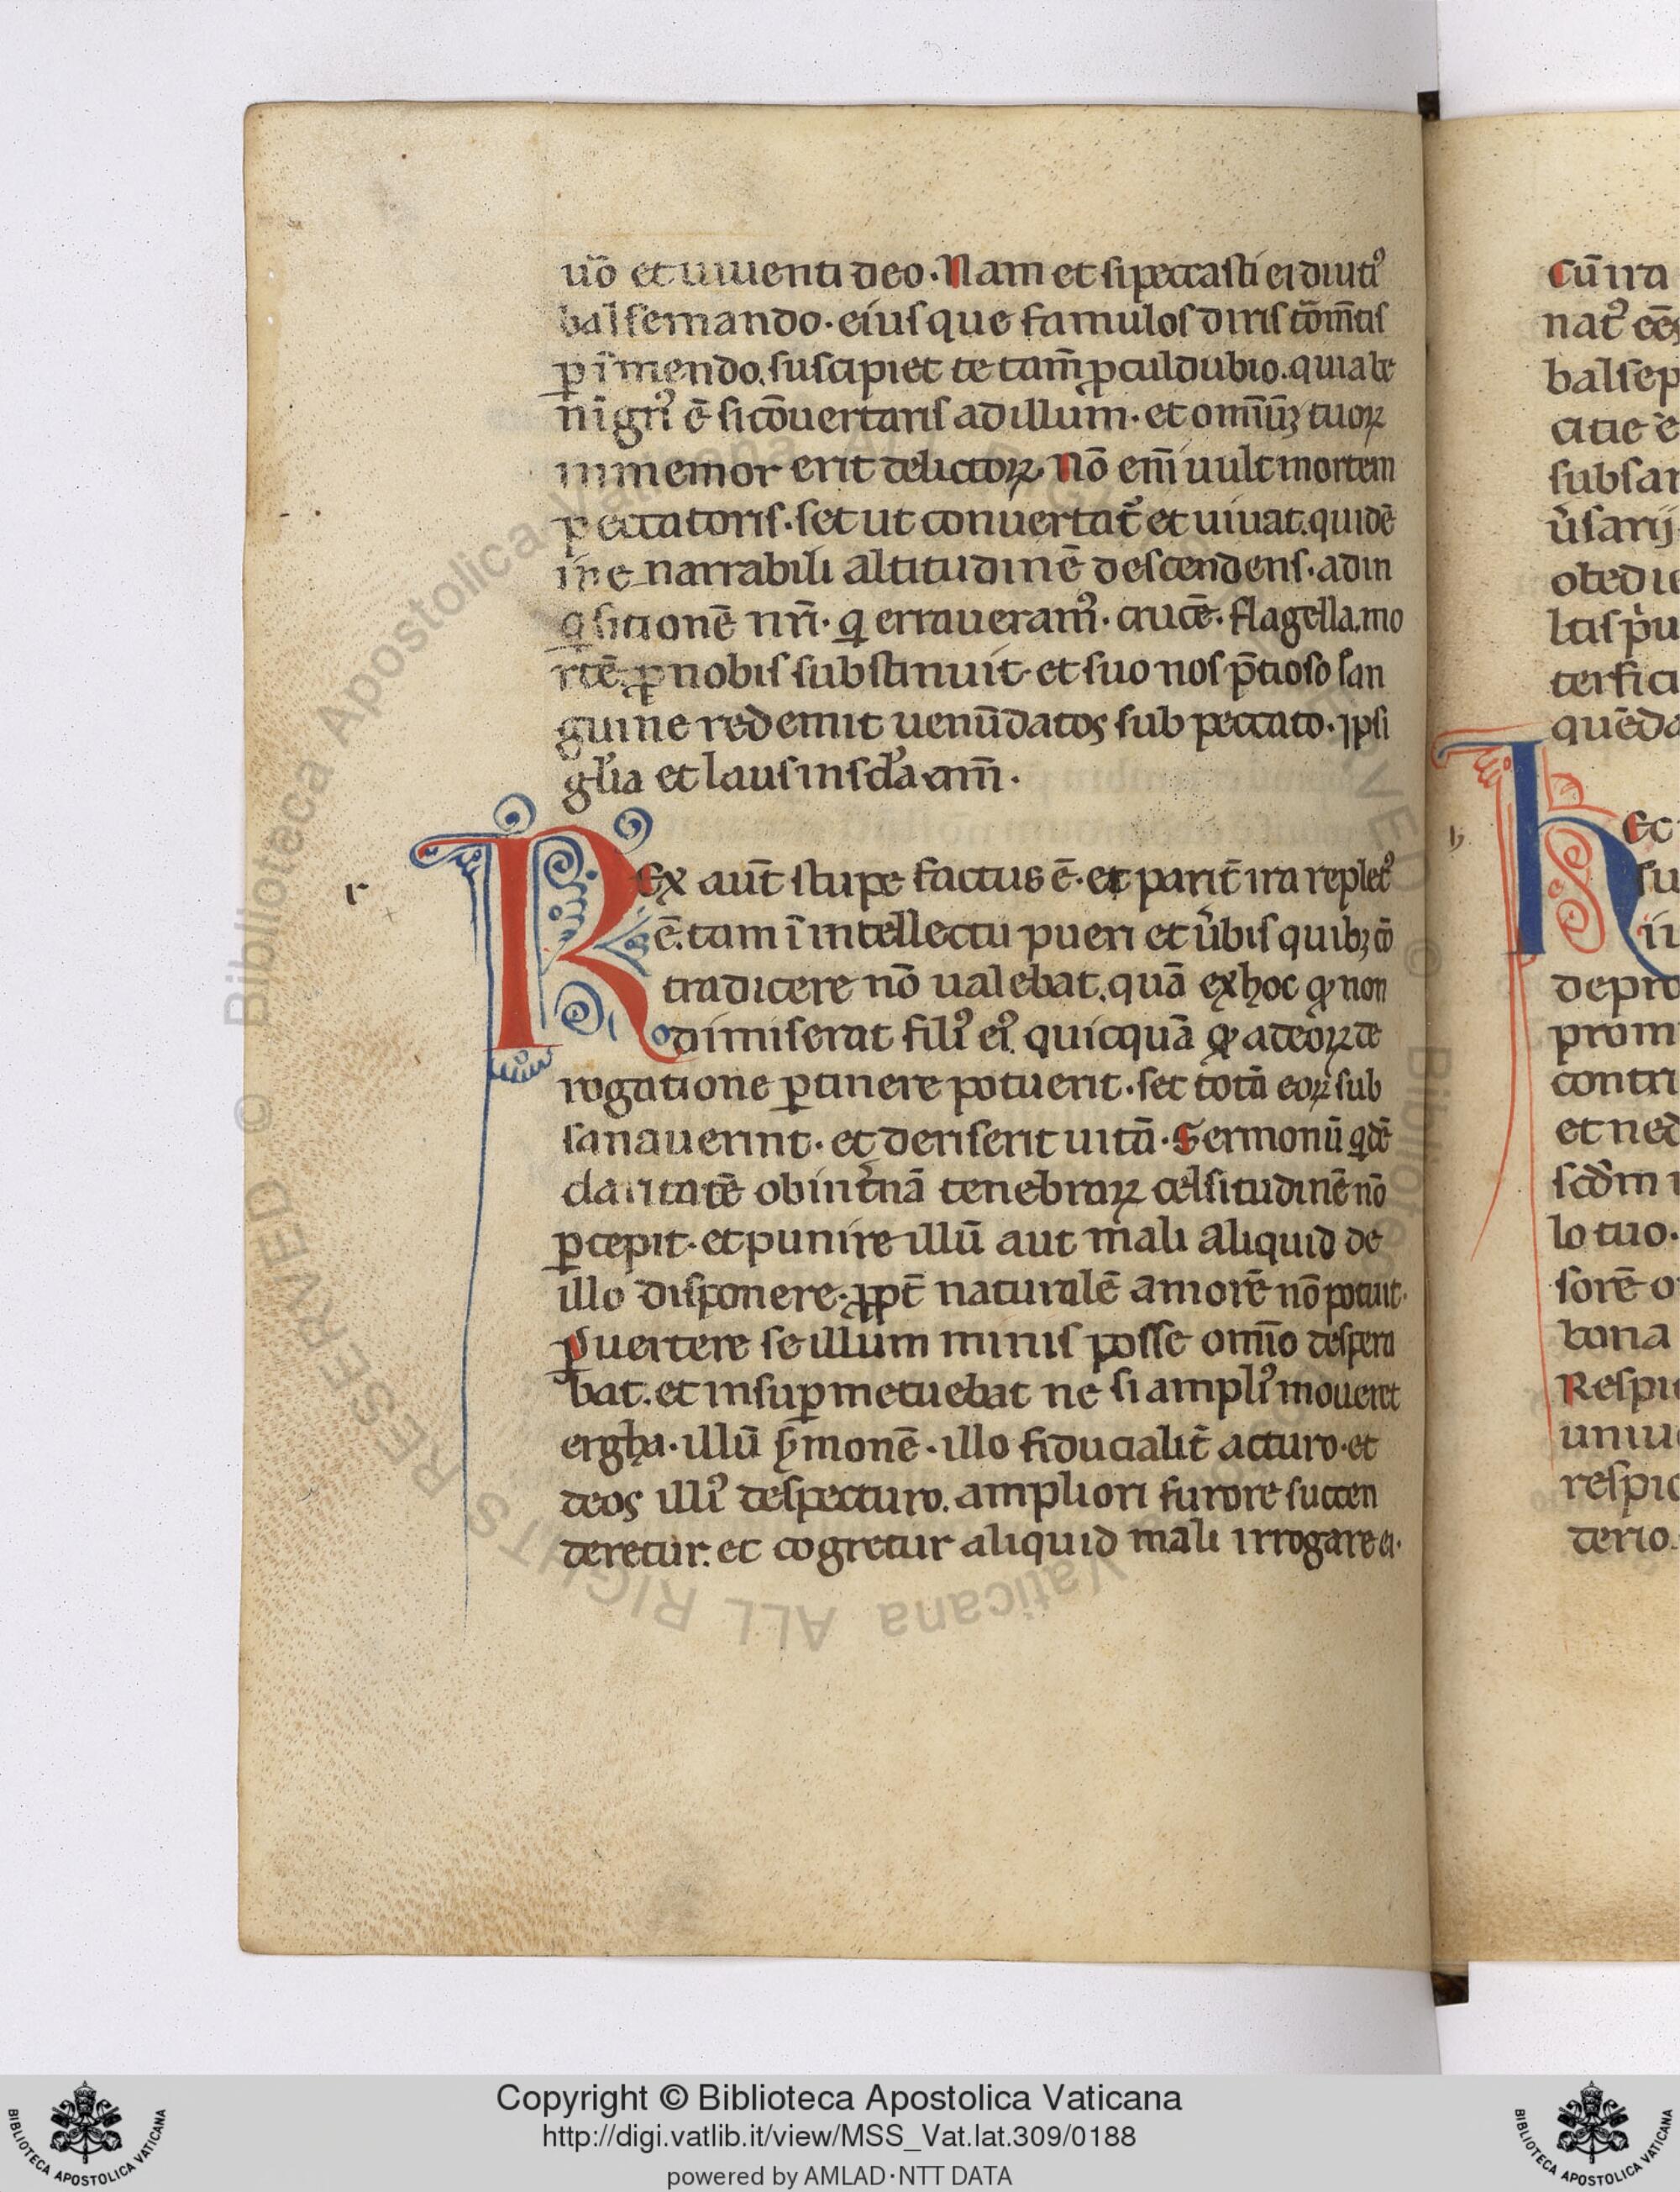 uo᷑ et uiuenti deo. Nam et si peccasti ei diutiꝰ
balsemando. eiusque famulos diris to᷑m̅tis
ꝑimendo. suscipiet te tam̅ ꝓculdubio. quia be
nignꝰ ē si cōuertaris ad illum. et omniūꝫ tuoꝝ
inmemor erit delictoꝝ. Nō eni̅ uult mortem
peccatoris. set ut conuertat᷑ et uiuat. qui dē
inenarrabili altitudinē descendens. ad in
ꝗsitionē nr̄i. ꝗ erraueramꝰ. crucē. flagella. mo
rtē. ꝓ nobis substinuit. et suo nos p̄tioso san
guine redemit uenūdatos sub peccato. ipsi
gl'ia et laus in sc̄la am̅.
Rex aut̄ stupefactus ē. et parit̄ ira repletꝰ
ē. tam ī intellectu pueri et u᷑bis quibꝫ cō
tradicere nō ualebat. quā ex hoc ꝙ non
dimiserat filiꝰ eiꝰ quicquā ꝙ a deoꝝ de
rogatione ꝑtinere potuerit. set totā eoꝝ sub
sanauerint. et deriserit uitā. Sermonū ꝗdē
claritatē ob int᷑nā tenebraꝝ celsitudinē nō
ꝑcepit. et punire illū aut mali aliquid de
illo disponere. ꝓpt̄ naturalē amorē nō potuit.
Ꝑuertere se illum minis posse omīo despera
bat. et insuꝑ metuebat ne si ampliꝰ moueret
ergha. illū s᷑monē. illo fiducialit̄ acturo. et
deos illiꝰ despecturo. ampliori furore succen
deretur. et cogretur aliquid mali irrogare ei.
r
cū ira
natꝰ eē
balsep
citie
subsan
u᷑sarij
obedie
terfici
quēda
h
Hec
su
depre
prom
contri
et ned
scd̄m
lo tuo.
sorē o
bona
Respi
uniu
respic
terio.
© Biblioteca Apostolica Vaticana ALL RIGHTS RESERVED
Copyright © Biblioteca Apostolica Vaticana
http://digi.vatlib.it/view/MSS_Vat.lat.309/0188
powered by AMLAD·NTT DATA
BIBLIOTECA APOSTOLICA VATICANA
BIBLIOTECA APOSTOLICA VATICANA